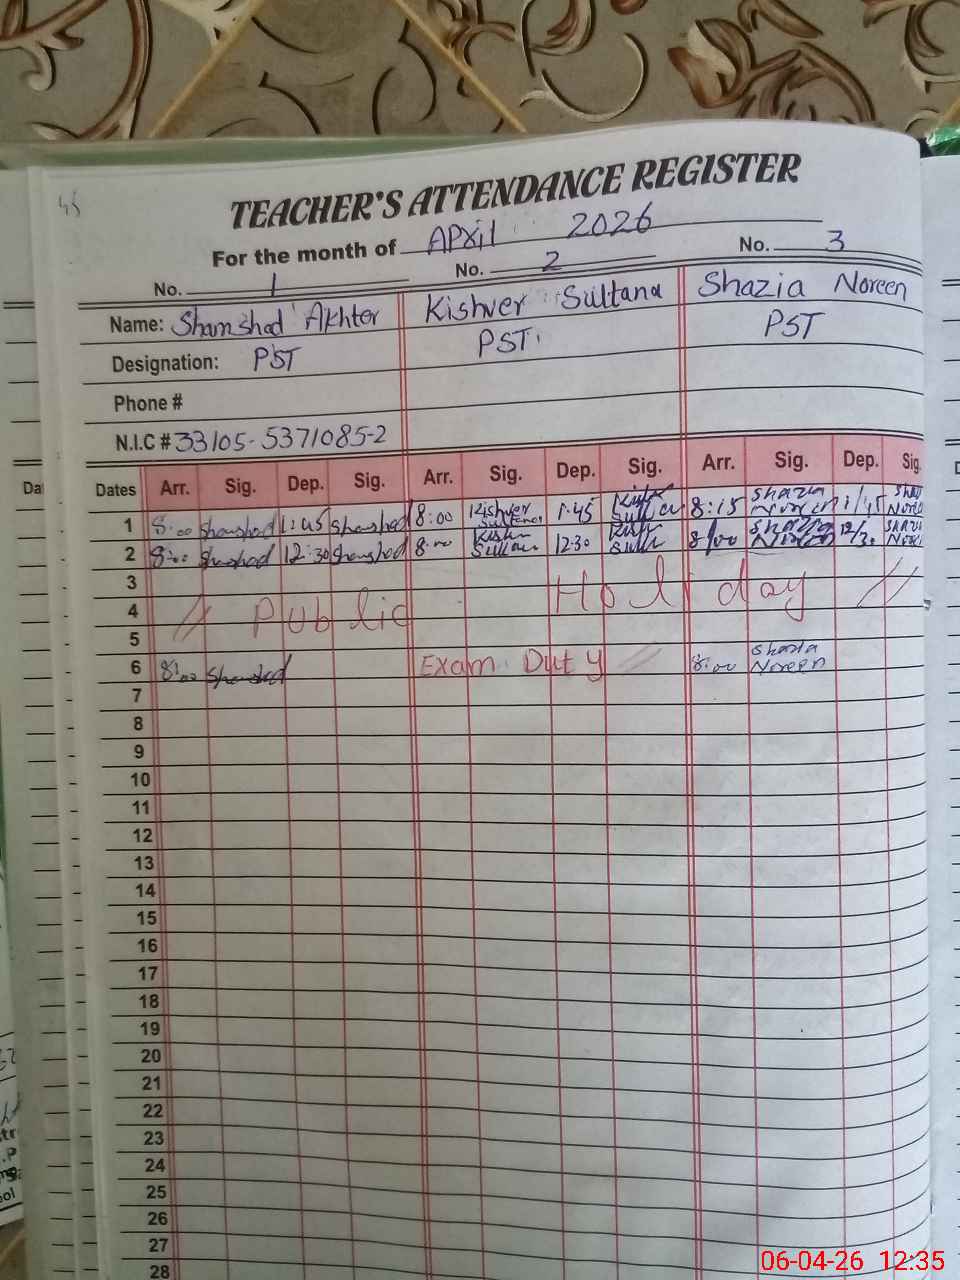 45
TEACHER'S ATTENDANCE REGISTER
For the month of April 2026
No. 1 No. 2 No. 3
Name: Shamshad Akhter Kishver Sultana Shazia Noreen
Designation: PST PST PST
Phone #
N.I.C # 33105-5371085-2
Dates Arr. Sig. Dep. Sig. Arr. Sig. Dep. Sig. Arr. Sig. Dep. Sig.
1 8:00 Shamshad 1:45 Shamshad 8:00 Kishver Sultana 1:45 8:15 Shazia Noreen 1/45
2 8:00 Shamshad 12:30 Shamshad 8:00 12:30 8/00 Shazia Noreen 12/30
3
4 // Public Holiday //
5
6 8:00 Shamshad Exam Duty // 8:00 Shazia Noreen
7
8
9
10
11
12
13
14
15
16
17
18
19
20
21
22
23
24
25
26
27
28
06-04-26 12:35